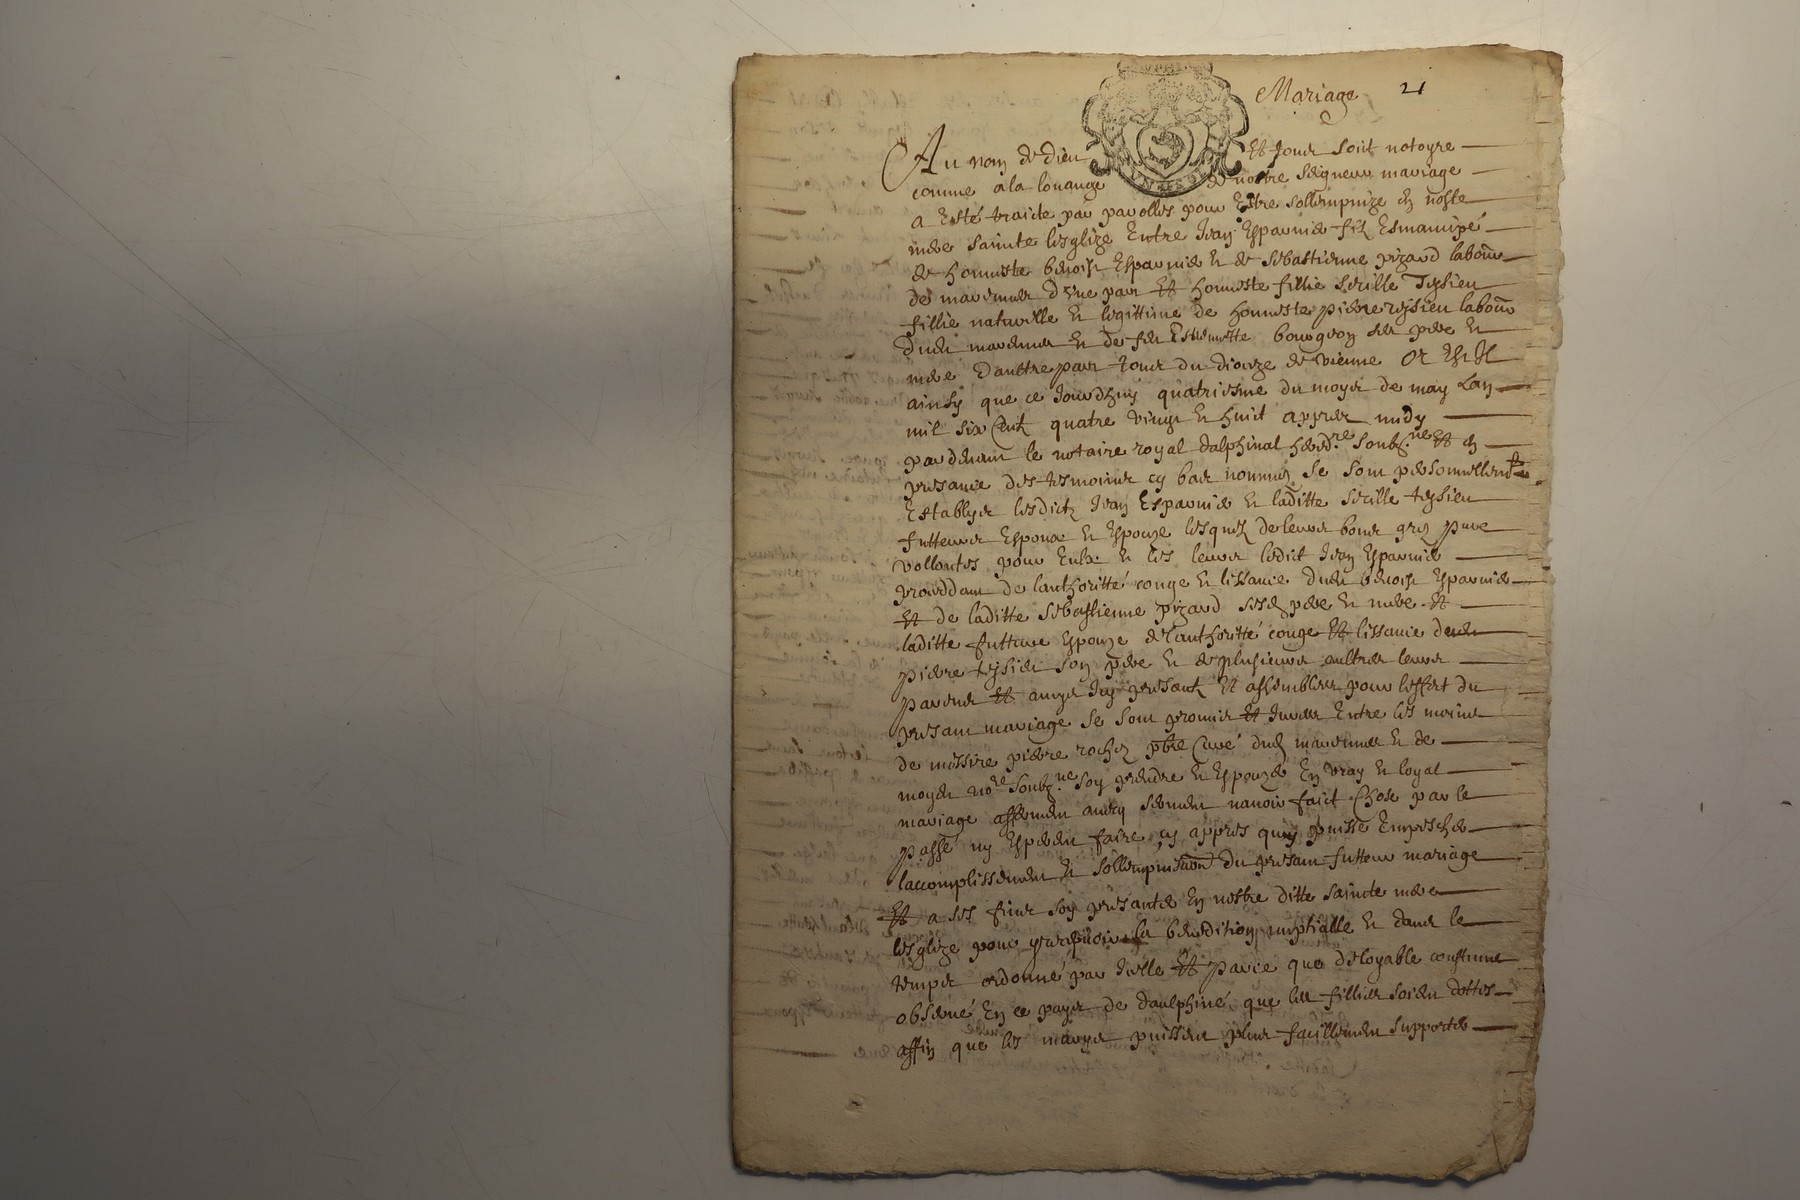 Mariage 21
Au nom de dieu Et tous soit notoyre
comme a la louange de nostre seigneur mariage
a Esté traicte par parolles pour Estre sollempnizé En nostre
mere sainte lesglize Entre Jean Esparnier filz Esmancipé
de honneste benoist Esparnier et de sebastienne pizard labour
de marennes d'Une part Et honneste fillie sibille Teysieu
fillie naturelle et legittime de honneste pierre teysieu labour
dudit marennes et de feu Estiennette bourgeon ses pere et
mere Dauttre part tous du dioceze de vienne Or Est Il
ainsy que ce Jourdhuy quatriesme du moys de may Lan
mil six Centz quatre vingt et huict appres midy
pardevant le notaire royal dalphinal heredre soubzne Et En
presance des tesmoins cy bas nommez se sont personnellemt
Establys lesdictz Jean Esparnier et laditte sibille teysieu
futteurs Espoux et Espouze lesquelz de leurs bons grez pure
vollontes pour Eulx et les leurs ledit Jean Esparnier
procedant de lauthoritté conge et lissance dudit benoist Esparnier
Et de laditte sebastienne pizard sesdz pere et mere Et
laditte futture Espouze de lauthoritté conge Et lissance dudit
pierre teysieu son pere et de plusieurs aultres leurs
parens Et amys Icy presentz Et assembles pour leffect du
presant mariage se sont promis Et Jures Entre les mains
de messire pierre rochez pbre Curé dudz marennes et de
moydit nore soubzne soy prendre et Espouzer En vray et loyal
mariage affermant avecq serment navoir faict Chose par le
passé ny Esperer faire cy appres quy puisse Empescher
laccomplissement et sollempnisaon du presant futteur mariage
Et a ses fins soy presanter En nostre ditte saincte mere
lesglize pour y recepvoir la benedition nuptialle et dans le
temps ordonné par Icelle Et parce que de loyable coustume
observé En ce pays de daulphiné que les fillies soient dottes
affin que les marys puissent plus facillement supporter